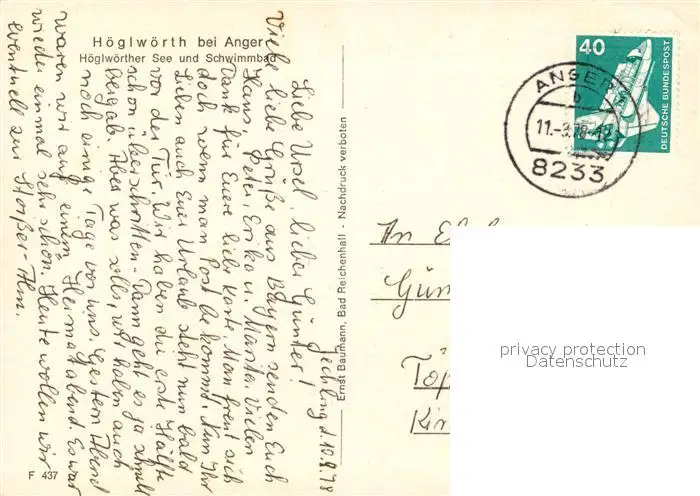 Höglwörth bei Anger
Höglwörther See und Schwimmbad
Jechling d. 10.8.78
Liebe Ursel, lieber Günter!
Viele liebe Grüße aus Bayern senden Euch
Hans, Peter, Erika u. Martin. Vielen
Dank für Eure liebe Karte. Man freut sich
doch wenn man Post bekommt. Nun Ihr
Lieben auch Euer Urlaub steht nun bald
vor der Tür. Wir haben die erste Hälfte
schon überschritten. Dann geht es ja schnell
bergab. Aber was solls, wir haben auch
noch einige Tage vor uns. Gestern Abend
waren wir auf einem Heimatabend. Es war
wieder einmal sehr schön. Heute wollen wir
eventuell zur
F 437
Ernst Baumann, Bad Reichenhall - Nachdruck verboten
40
DEUTSCHE BUNDESPOST
ANGER
b
8233
An
Gün
Töp
Kir
privacy protection
Datenschutz